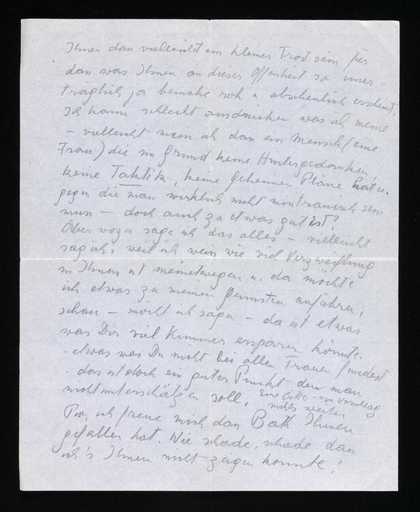 Ihnen dann vielleicht ein kleiner Trost sein für
das was Ihnen an dieser Offenheit so uner-
träglich ja beinahe roh u. abscheulich erscheint.
Ich kann schlecht ausdrücken was ich meine
– vielleicht wenn ich dann ein Mensch (eine
Frau) die im Grund keine Hintergedanken,
keine Taktik, keine geheimen Pläne hat u.
gegen die man wirklich nicht misstrauisch sein
muss – doch auch zu etwas gut ist?
Aber wozu sage ich das alles – vielleicht
sag ich, weil ich weiss wie viel Verzweiflung
in Ihnen ist meinetwegen u. da möchte
ich etwas zu meinen Gunsten anführen,
schau – möcht ich sagen – da ist etwas
was Dir viel Kummer ersparen könnte.
etwas was Du nicht bei allen Frauen findest
das ist doch ein guter Punkt den man
nicht unterschätzen soll.
ich freue mich dass Ihnen
gefallen hat. Wie schade, schade dass
ich's Ihnen nicht zeigen konnte!